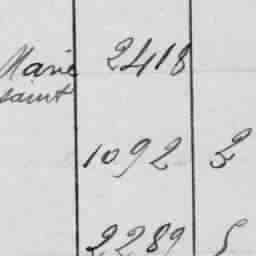 Marie 2418
saint
1092 3
2289 5